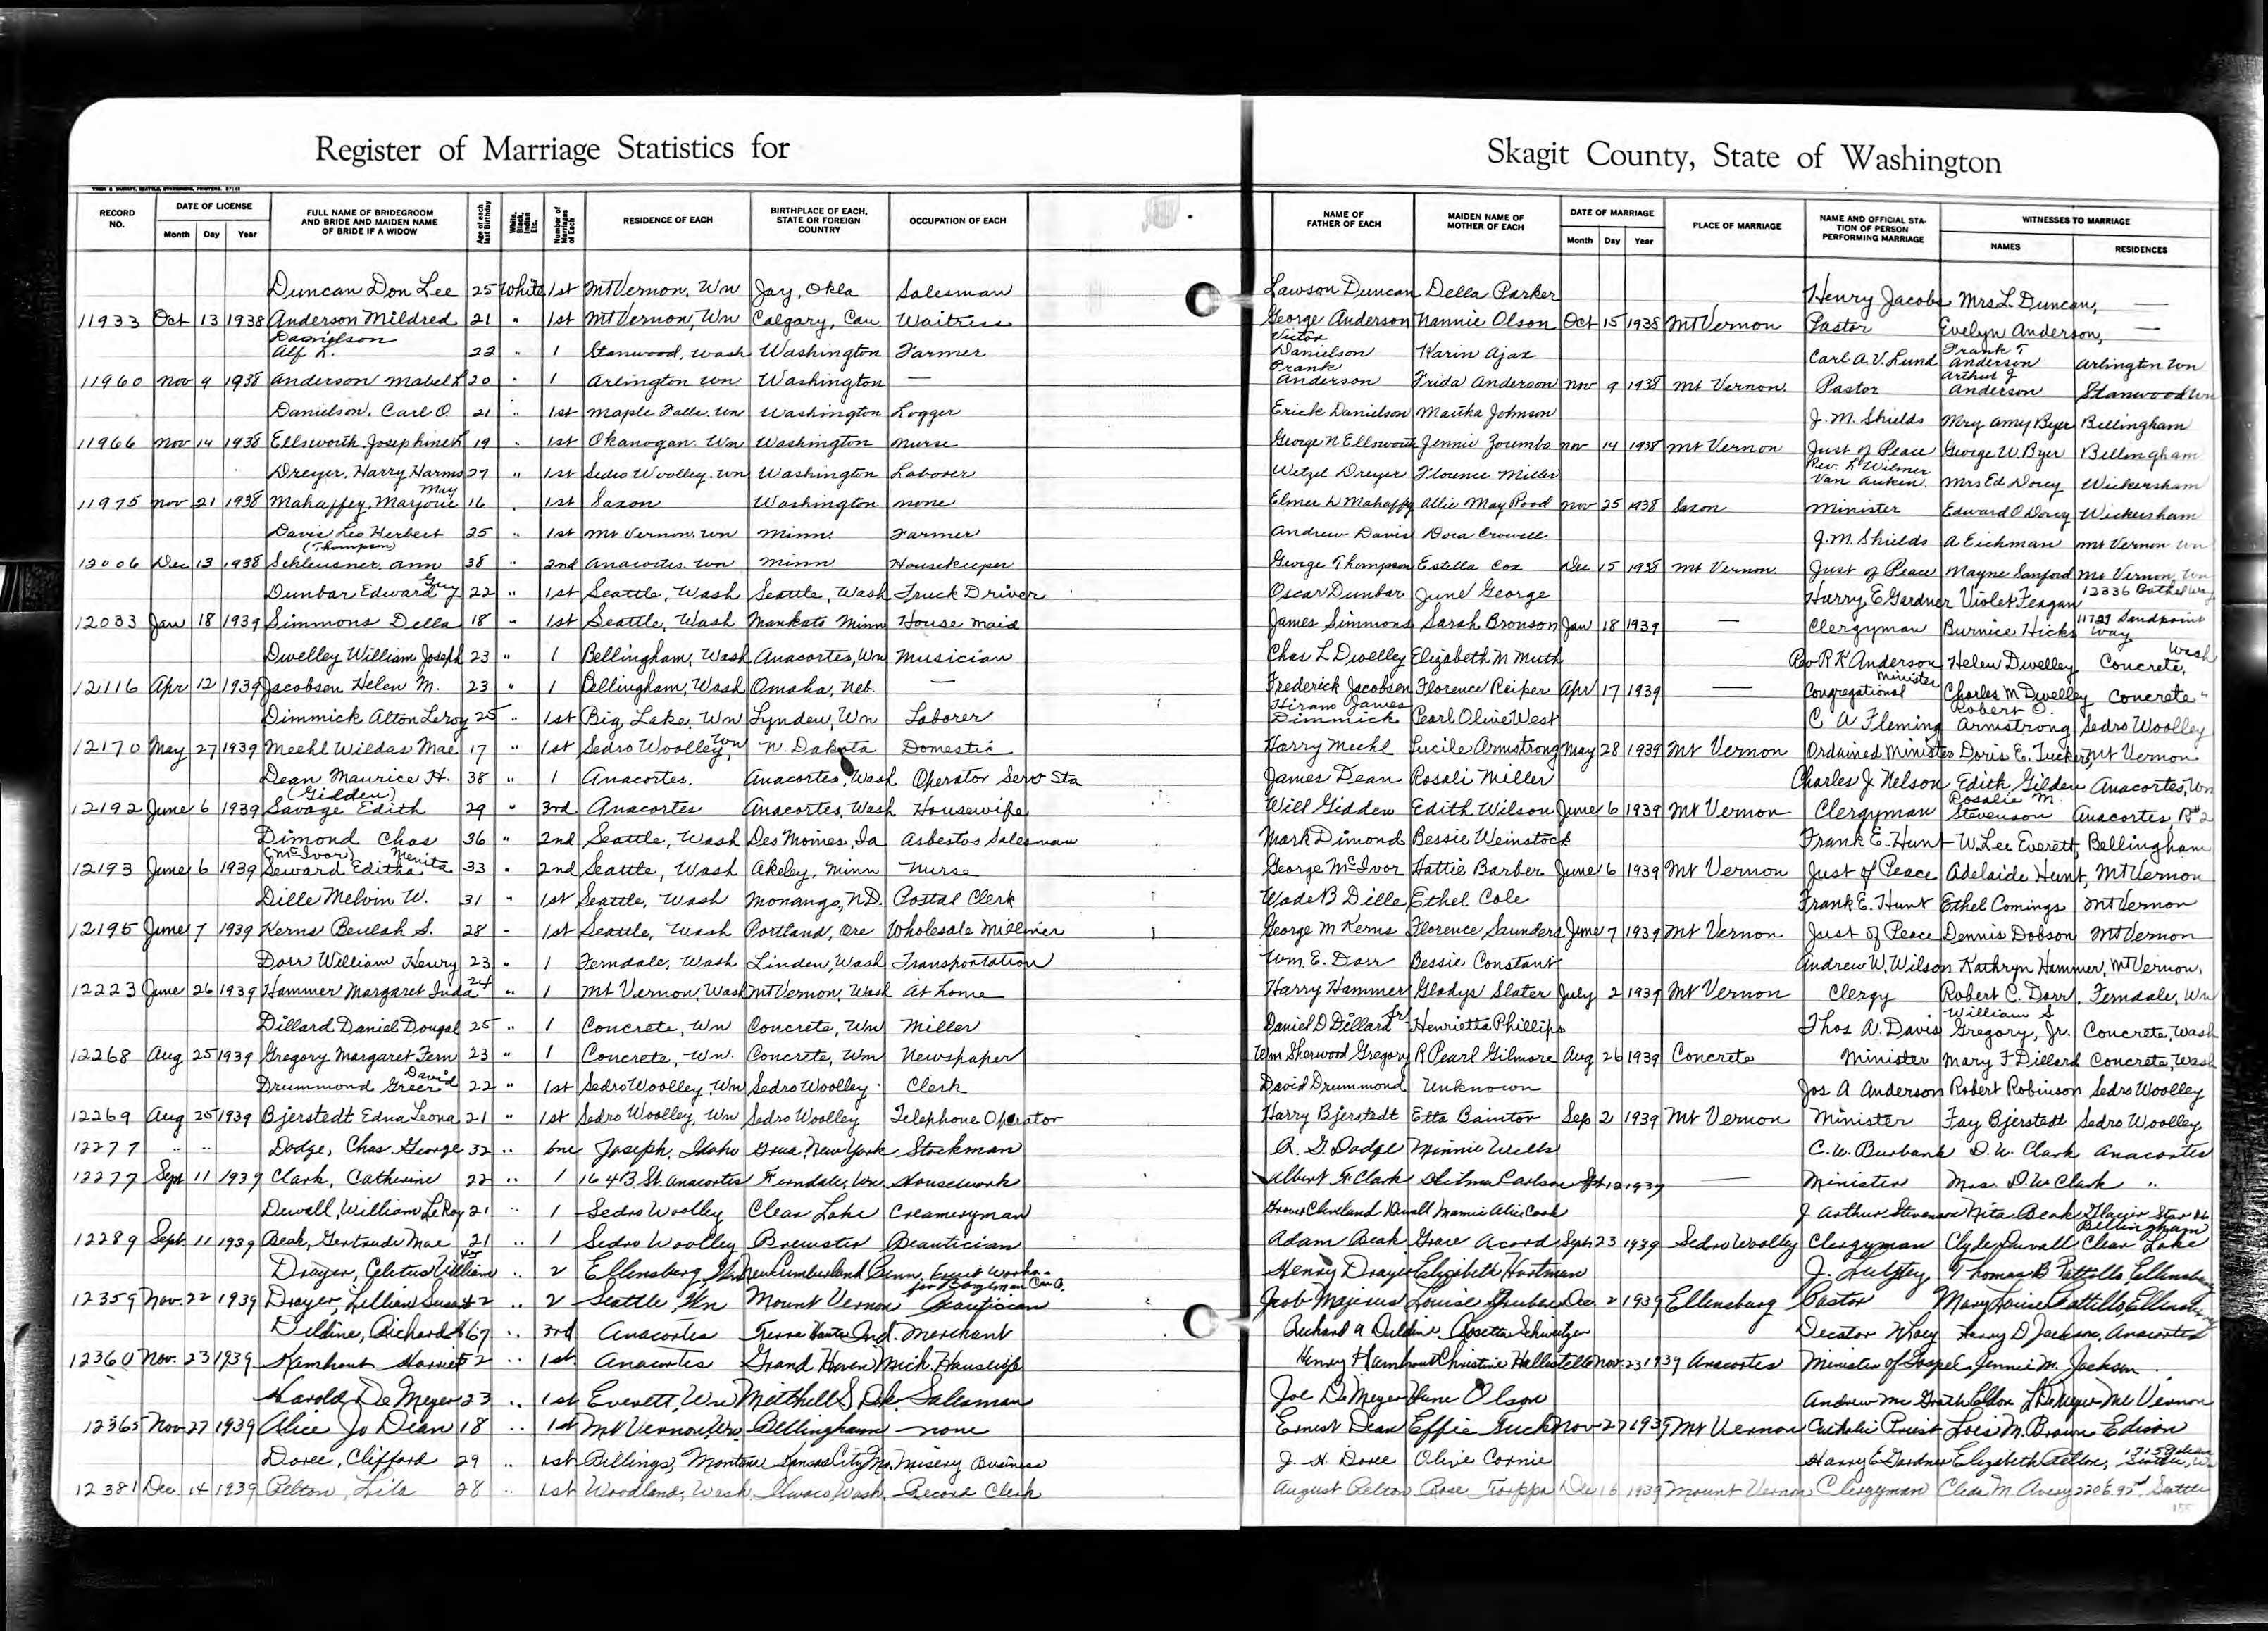 Register of Marriage Statistics for
Skagit County, State of Washington
RECORD NO.
DATE OF LICENSE
Month Day Year
FULL NAME OF BRIDEGROOM AND BRIDE AND MAIDEN NAME OF BRIDE IF A WIDOW
Age of each last Birthday
White, Black, Indian Etc.
Number of Marriages of Each
RESIDENCE OF EACH
BIRTHPLACE OF EACH, STATE OR FOREIGN COUNTRY
OCCUPATION OF EACH
NAME OF FATHER OF EACH
MAIDEN NAME OF MOTHER OF EACH
DATE OF MARRIAGE
Month Day Year
PLACE OF MARRIAGE
NAME AND OFFICIAL STATION OF PERSON PERFORMING MARRIAGE
WITNESSES TO MARRIAGE
NAMES RESIDENCES
Duncan Don Lee 25 White 1st Mt Vernon, Wn Jay, Okla Salesman Lawson Duncan Della Parker Henry Jacobs Mrs L. Duncan, —
11933 Oct 13 1938 Anderson Mildred 21 " 1st Mt Vernon, Wn Calgary, Can Waitress George Anderson Nannie Olson Oct 15 1938 Mt Vernon Pastor Evelyn Anderson, —
Danielson Alf L. 22 " 1 Stanwood, Wash Washington Farmer Victor Danielson Karin Ajax Carl A. V. Lund Frank T Anderson Arlington Wn
11960 Nov 9 1938 Anderson Mabel L 20 " 1 Arlington Wn Washington — Frank Anderson Frida Anderson Nov 9 1938 Mt Vernon. Pastor Arthur J Anderson Stanwood Wn
Danielson, Carl O 21 " 1st Maple Falls. Wn Washington Logger Erick Danielson Martha Johnson J. M. Shields Mry Amy Byer Bellingham
11966 Nov 14 1938 Ellsworth, Josephine 19 " 1st Okanogan. Wn Washington Nurse George N Ellsworth Jennie Nov 14 1938 Mt Vernon Just of Peace George W. Byer Bellingham
Dreyer, Harry Harms 27 " 1st Sedro Woolley. Wn Washington Laborer Wetzel Dreyer Florence Miller Rev. L Wilmer Van Auken. Mrs Ed Dorcy Wickersham
11975 Nov 21 1938 Mahaffey, Marjorie May 16 " 1st Saxon Washington none Elmer W Mahaffy Allie May Rood Nov 25 1938 Saxon Minister Edward O Dorcy Wickersham
Davis Leo Herbert 25 " 1st Mt Vernon. Wn Minn. Farmer Andrew Davis Dora Crowell J. M. Shields A Eickman Mt Vernon Wn
12006 Dec 13 1938 Schleusner. Ann (Thompson) 38 " 2nd Anacortes. Wn Minn Housekeeper George Thompson Estella Cox Dec 15 1938 Mt Vernon. Just of Peace Mayne Sanford Mt Vernon, Wn
Dunbar Edward Guy 22 " 1st Seattle, Wash Seattle, Wash Truck Driver Oscar Dunbar June George Harry E Gardner Violet Feagan 12336 Bothel Way
12033 Jan 18 1939 Simmons Della 18 " 1st Seattle, Wash Mankato Minn House maid James Simmons Sarah Bronson Jan 18 1939 — Clergyman Burnice Hicks 11729 Sandpoint Way
Dwelley William Joseph 23 " 1 Bellingham, Wash Anacortes, Wn Musician Chas L Dwelley Elizabeth N Muth Rev R K Anderson Helen Dwelley Concrete, Wash
12116 Apr 12 1939 Jacobsen Helen M. 23 " 1 Bellingham, Wash Omaha, Neb. — Frederick Jacobsen Florence Reiper Apr 17 1939 — Congregational Minister Charles M Dwelley Concrete "
Dimmick Alton Leroy 25 " 1st Big Lake. Wn Lynden, Wn Laborer Hiram James Dimmick Pearl Olive West C A Fleming Robert O. Armstrong Sedro Woolley
12170 May 27 1939 Meehl Wildas Mae 17 " 1st Sedro Woolley, Wn N. Dakota Domestic Harry Meehl Lucile Armstrong May 28 1939 Mt Vernon Ordained Minister Doris E. Tucker, Mt Vernon
Dean Maurice H. 38 " 1 Anacortes. Anacortes, Wash Operator Serv Sta James Dean Rosali Miller Charles J Nelson Edith Gilden Anacortes, Wn
12192 June 6 1939 Savage Edith (Gidden) 29 " 3rd Anacortes Anacortes, Wash Housewife Will Gidden Edith Wilson June 6 1939 Mt Vernon Clergyman Rosalie M. Stevenson Anacortes R#2
Dimond Chas 36 " 2nd Seattle, Wash Des Moines, Ia Asbestos Salesman Mark Dimond Bessie Weinstock Frank E. Hunt W. Lee Everett, Bellingham
12193 June 6 1939 Seward Editha (McIvor) Menita 33 " 2nd Seattle, Wash Akeley, Minn Nurse George McIvor Hattie Barber June 6 1939 Mt Vernon Just of Peace Adelaide Hunt, Mt Vernon
Dille Melvin W. 31 " 1st Seattle, Wash Monango, N.D. Postal Clerk Wade B Dille Ethel Cole Frank E. Hunt Ethel Comings Mt Vernon
12195 June 7 1939 Kerns Beulah S. 28 - 1st Seattle, Wash Portland, Ore Wholesale Milliner George M Kerns Florence Saunders June 7 1939 Mt Vernon Just of Peace Dennis Dobson Mt Vernon
Dorr William Henry 23 " 1 Ferndale, Wash Linden, Wash Transportation Wm. E. Dorr Bessie Constant Andrew W. Wilson Kathryn Hammer, Mt Vernon.
12223 June 26 1939 Hammer Margaret Inda 24 " 1 Mt Vernon, Wash Mt Vernon, Wash At home Harry Hammer Gladys Slater July 2 1939 Mt Vernon Clergy Robert C. Dorr, Ferndale, Wn
Dillard Daniel Dougal 25 " 1 Concrete, Wn Concrete, Wn Miller Daniel D Dillard Sr Henrietta Phillips Thos A. Davis William S Gregory, Jr. Concrete, Wash
12268 Aug 25 1939 Gregory Margaret Fern 23 " 1 Concrete, Wn. Concrete, Wn Newspaper Wm Sherwood Gregory R Pearl Gilmore Aug 26 1939 Concrete Minister Mary F Dillard Concrete, Wash
Drummond Greer David 22 " 1st Sedro Woolley, Wn Sedro Woolley Clerk David Drummond Unknown Jos A Anderson Robert Robinson Sedro Woolley
12269 Aug 25 1939 Bjerstedt Edna Leona 21 " 1st Sedro Woolley, Wn Sedro Woolley Telephone Operator Harry Bjerstedt Etta Baintor Sep 2 1939 Mt Vernon Minister Fay Bjerstedt Sedro Woolley
12277 " " Dodge, Chas George 32 " one Joseph, Idaho New York Stockman R. G. Dodge Minnie Wells C. W. Burbank D. W. Clark Anacortes
12277 Sept 11 1939 Clark, Catherine 22 " 1 1643 St. Anacortes Ferndale, Wn Housework Albert F. Clark Hilma Carlson Sept 12 1939 — Minister Mrs. D. W Clark "
Duvall, William LeRoy 21 " 1 Sedro Woolley Clear Lake Creameryman Grover Cleveland Duvall Mamie Alice Cook J. Arthur Stevenson Nita Beak Glacier Star Rt. Bellingham
12289 Sept. 11 1939 Beak, Gertrude Mae 21 " 1 Sedro Woolley Brewster Beautician Adam Beak Grace Acord Sept. 23 1939 Sedro Woolley Clergyman Clyde Duvall Clear Lake
Drayer, Celetus William 45 " 2 Ellensburg Wn New Cumberland Penn. Henry Drayer Elizabeth Hartman J. Thomas B Pattillo Ellensburg
12359 Nov. 22 1939 Drayer, Lillian Susan 42 " 2 Seattle Wn Mount Vernon Beautician Jacob Majerus Louise Gruber Dec. 2 1939 Ellensburg Pastor Mary Louise Pattillo Ellensburg
Deldine, Richard A 67 " 3rd Anacortes Terra Haute Ind. Merchant Richard A Deldine Rosetta Schweitzer Decator Harry D Jackson, Anacortes
12360 Nov. 23 1939 Kamhout Harriet 52 " 1st. Anacortes Grand Haven Mich. Housewife Henry Kamhout Christine Nov. 23 1939 Anacortes Minister of Gospel Jennie M. Jackson
Harold De Meyer 23 " 1st Everett, Wn Mitchell S Dk. Salesman Joe DeMeyer June Olson Andrew Mc Grath Eldon L DeMeyer Mt Vernon
12365 Nov 27 1939 Alice Jo Dean 18 " 1st Mt Vernon, Wn. Bellingham none Ernest Dean Effie Tuck Nov 27 1939 Mt Vernon Catholic Priest Lois M. Brown Edison
Doree, Clifford 29 " 1st Billings, Montana Kansas City Mo. Business J. H. Doree Olive Cornie Harry E Gardner Elizabeth Pelton,
12381 Dec. 14 1939 Pelton, Lila 28 " 1st Woodland, Wash. Ilwaco, Wash. Record Clerk August Pelton Rose Dec 16 1939 Mount Vernon Clergyman Cleda M Avery 220 E 92nd Seattle